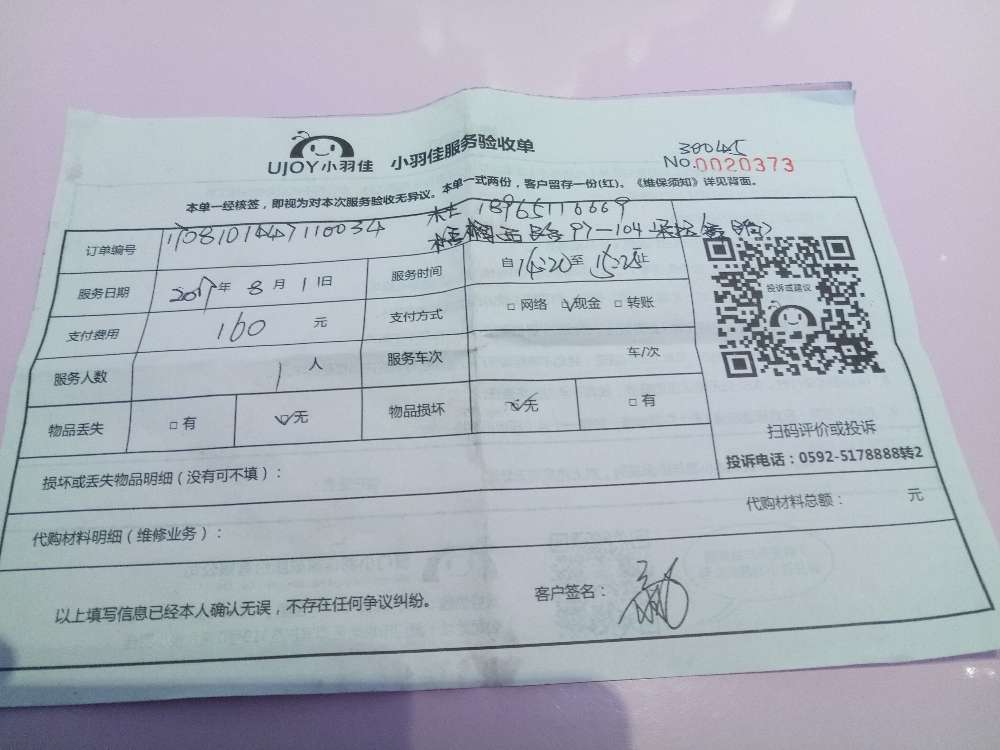 UJOY小羽佳 小羽佳服务验收单
38045
No.0020373
本单一经核签，即视为对本次服务验收无异议。本单一式两份，客户留存一份(红)。《维保须知》详见背面。
订单编号 18965116669
97-104
服务日期 2017年 8 月 1 日 服务时间 自 14:20 至 15:25 止
支付费用 160 元 支付方式 □ 网络 ☑现金 □ 转账
服务人数 人 服务车次 车/次
物品丢失 □ 有 ☑无 物品损坏 ☑无 □ 有
投诉或建议
扫码评价或投诉
投诉电话：0592-5178888转2
损坏或丢失物品明细（没有可不填）：
代购材料明细（维修业务）： 代购材料总额： 元
以上填写信息已经本人确认无误，不存在任何争议纠纷。 客户签名：